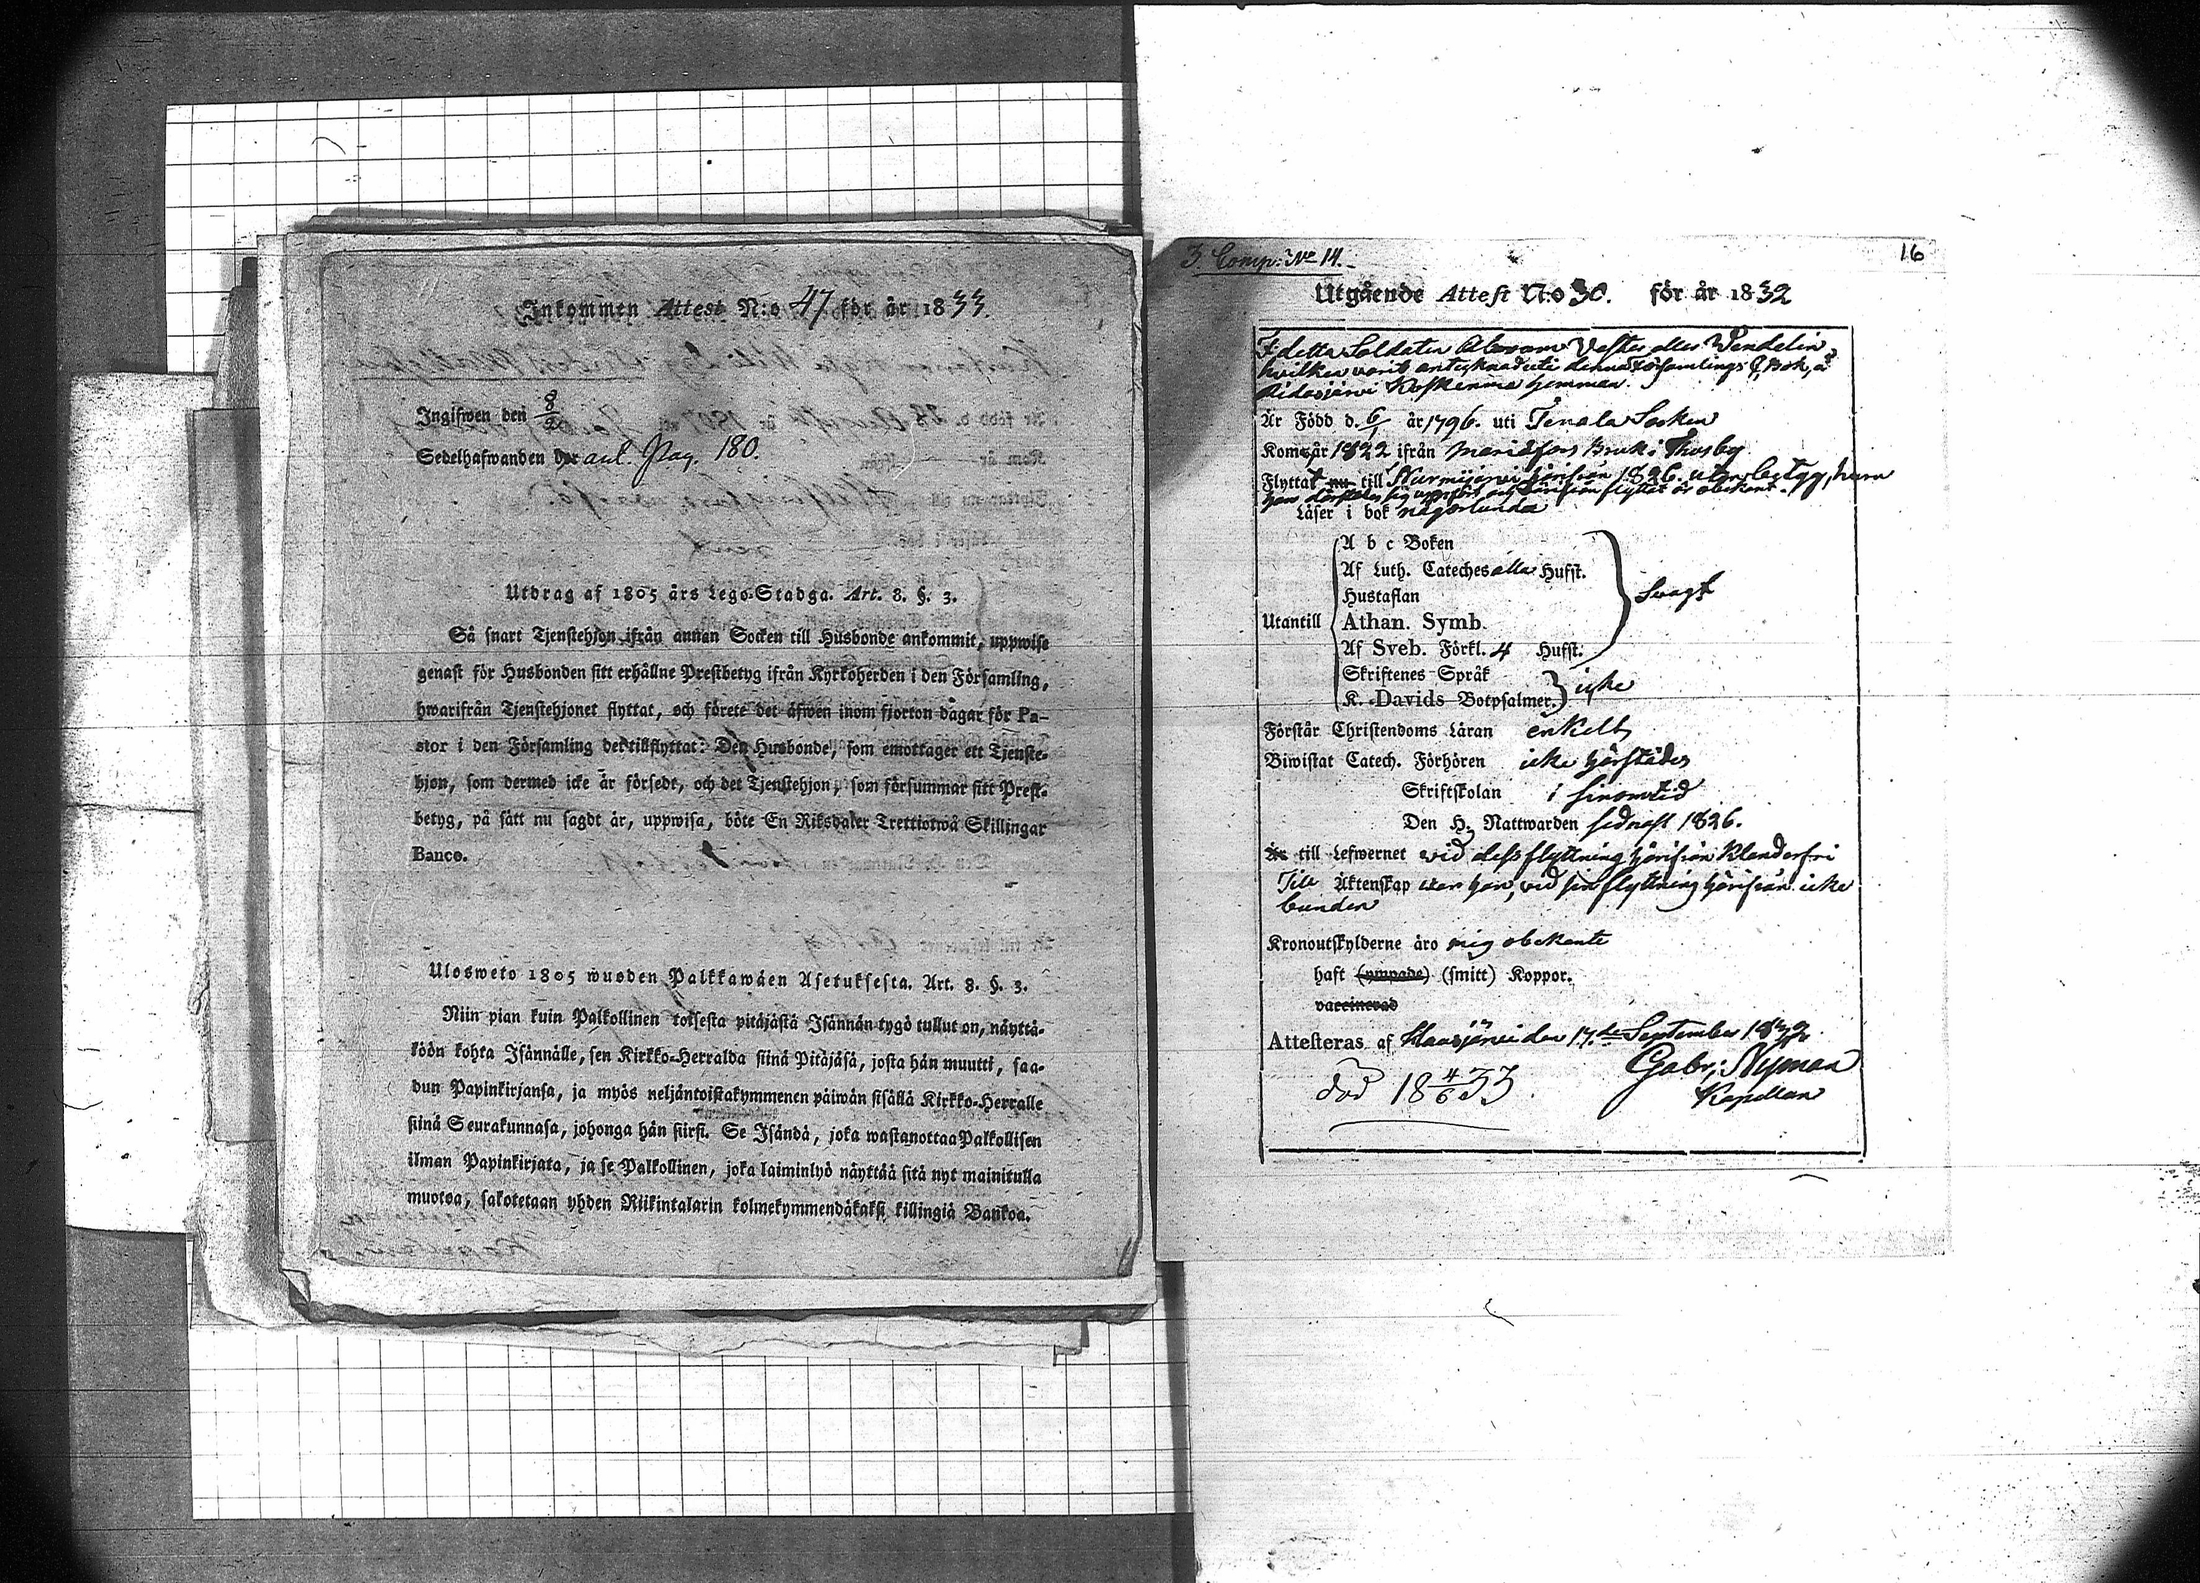 Inkommen Attest N:o 47 för år 1833.
Ingifwen den 8/2
Sedelhafwanden anl. Pag. 180.
Utdrag af 1805 års Lego-Stadga. Art. 8. §. 3.
Så snart Tjenstehjon ifrån annan Socken till Husbonde ankommit, uppwise
genast för Husbonden sitt erhållne Prestbetyg ifrån Kyrkoherden i den Församling,
hwarifrån Tjenstehjonet flyttat, och förete det äfwen inom fjorton dagar för Pa-
stor i den Församling det tillflyttat: Den Husbonde, som emottager ett Tjenste-
hjon, som dermed icke är försedt, och det Tjenstehjon, som försummar sitt Prest-
betyg, på sätt nu sagdt är, uppwisa, böte En Riksdaler Trettiotwå Skillingar
Banco.
Ulosweto 1805 wuoden Palkkawäen Asetuksesta. Art. 8. §. 3.
Niin pian kuin Palkollinen toisesta pitäjästä Isännän tygö tullut on, näyttä-
köön kohta Isännälle, sen Kirkko-Herralda siinä Pitäjäsä, josta hän muutti, saa-
dun Papinkirjansa, ja myös neljäntoistakymmenen päiwän sisällä Kirkko-Herralle
siinä Seurakunnasa, johonga hän siirsi. Se Isändä, joka wastanottaa Palkollisen
ilman Papinkirjata, ja se Palkollinen, joka laiminlyö näyttää sitä nyt mainitulla
muotoa, sakotetaan yhden Riikintalarin kolmekymmendäkaksi killingiä Bankoa.
3 Comp: No 14.
16
Utgående Attest N:o 30. för år 1832
Fdetta Soldaten Abram Vester eller Wendelin,
hvilken varit antecknad uti denna Församlings Bok, å
Ridasjärvi Koskenma hemman.
Är Född d. 6/1 år 1796. uti Tenala Socken
Kom år 1822 ifrån Mariefors Bruk i Thusby
Flyttat nu till Nurmijärvi härifrån 1826. utan betyg, huru
han därstädes sig uppfört och därifrån flyttat är obekant.
Läser i bok någorlunda
Utantill
A b c Boken
Af Luth. Cateches alla Hufst.
Hustaflan
Athan. Symb.
Af Sveb. Förkl. 4 Hufst.
svagt
Skriftenes Språk
K. Davids Botpsalmer.
icke
Förstår Christendoms Läran enkelt
Biwistat Catech. Förhören icke härstädes
Skriftskolan i sinom tid
Den H. Nattwarden sednast 1826.
Är till Lefwernet vid dess flyttning härifrån klanderfri
Till Äktenskap war han, vid sin flyttning härifrån icke
bunden
Kronoutskylderne äro mig obekante
haft (ympade) (smitt) Koppor.
vaccinerad
Attesteras af Hausjärvi den 17.de September 1832
Gabr: Nyman
Kapellan
död 18 4/6 33